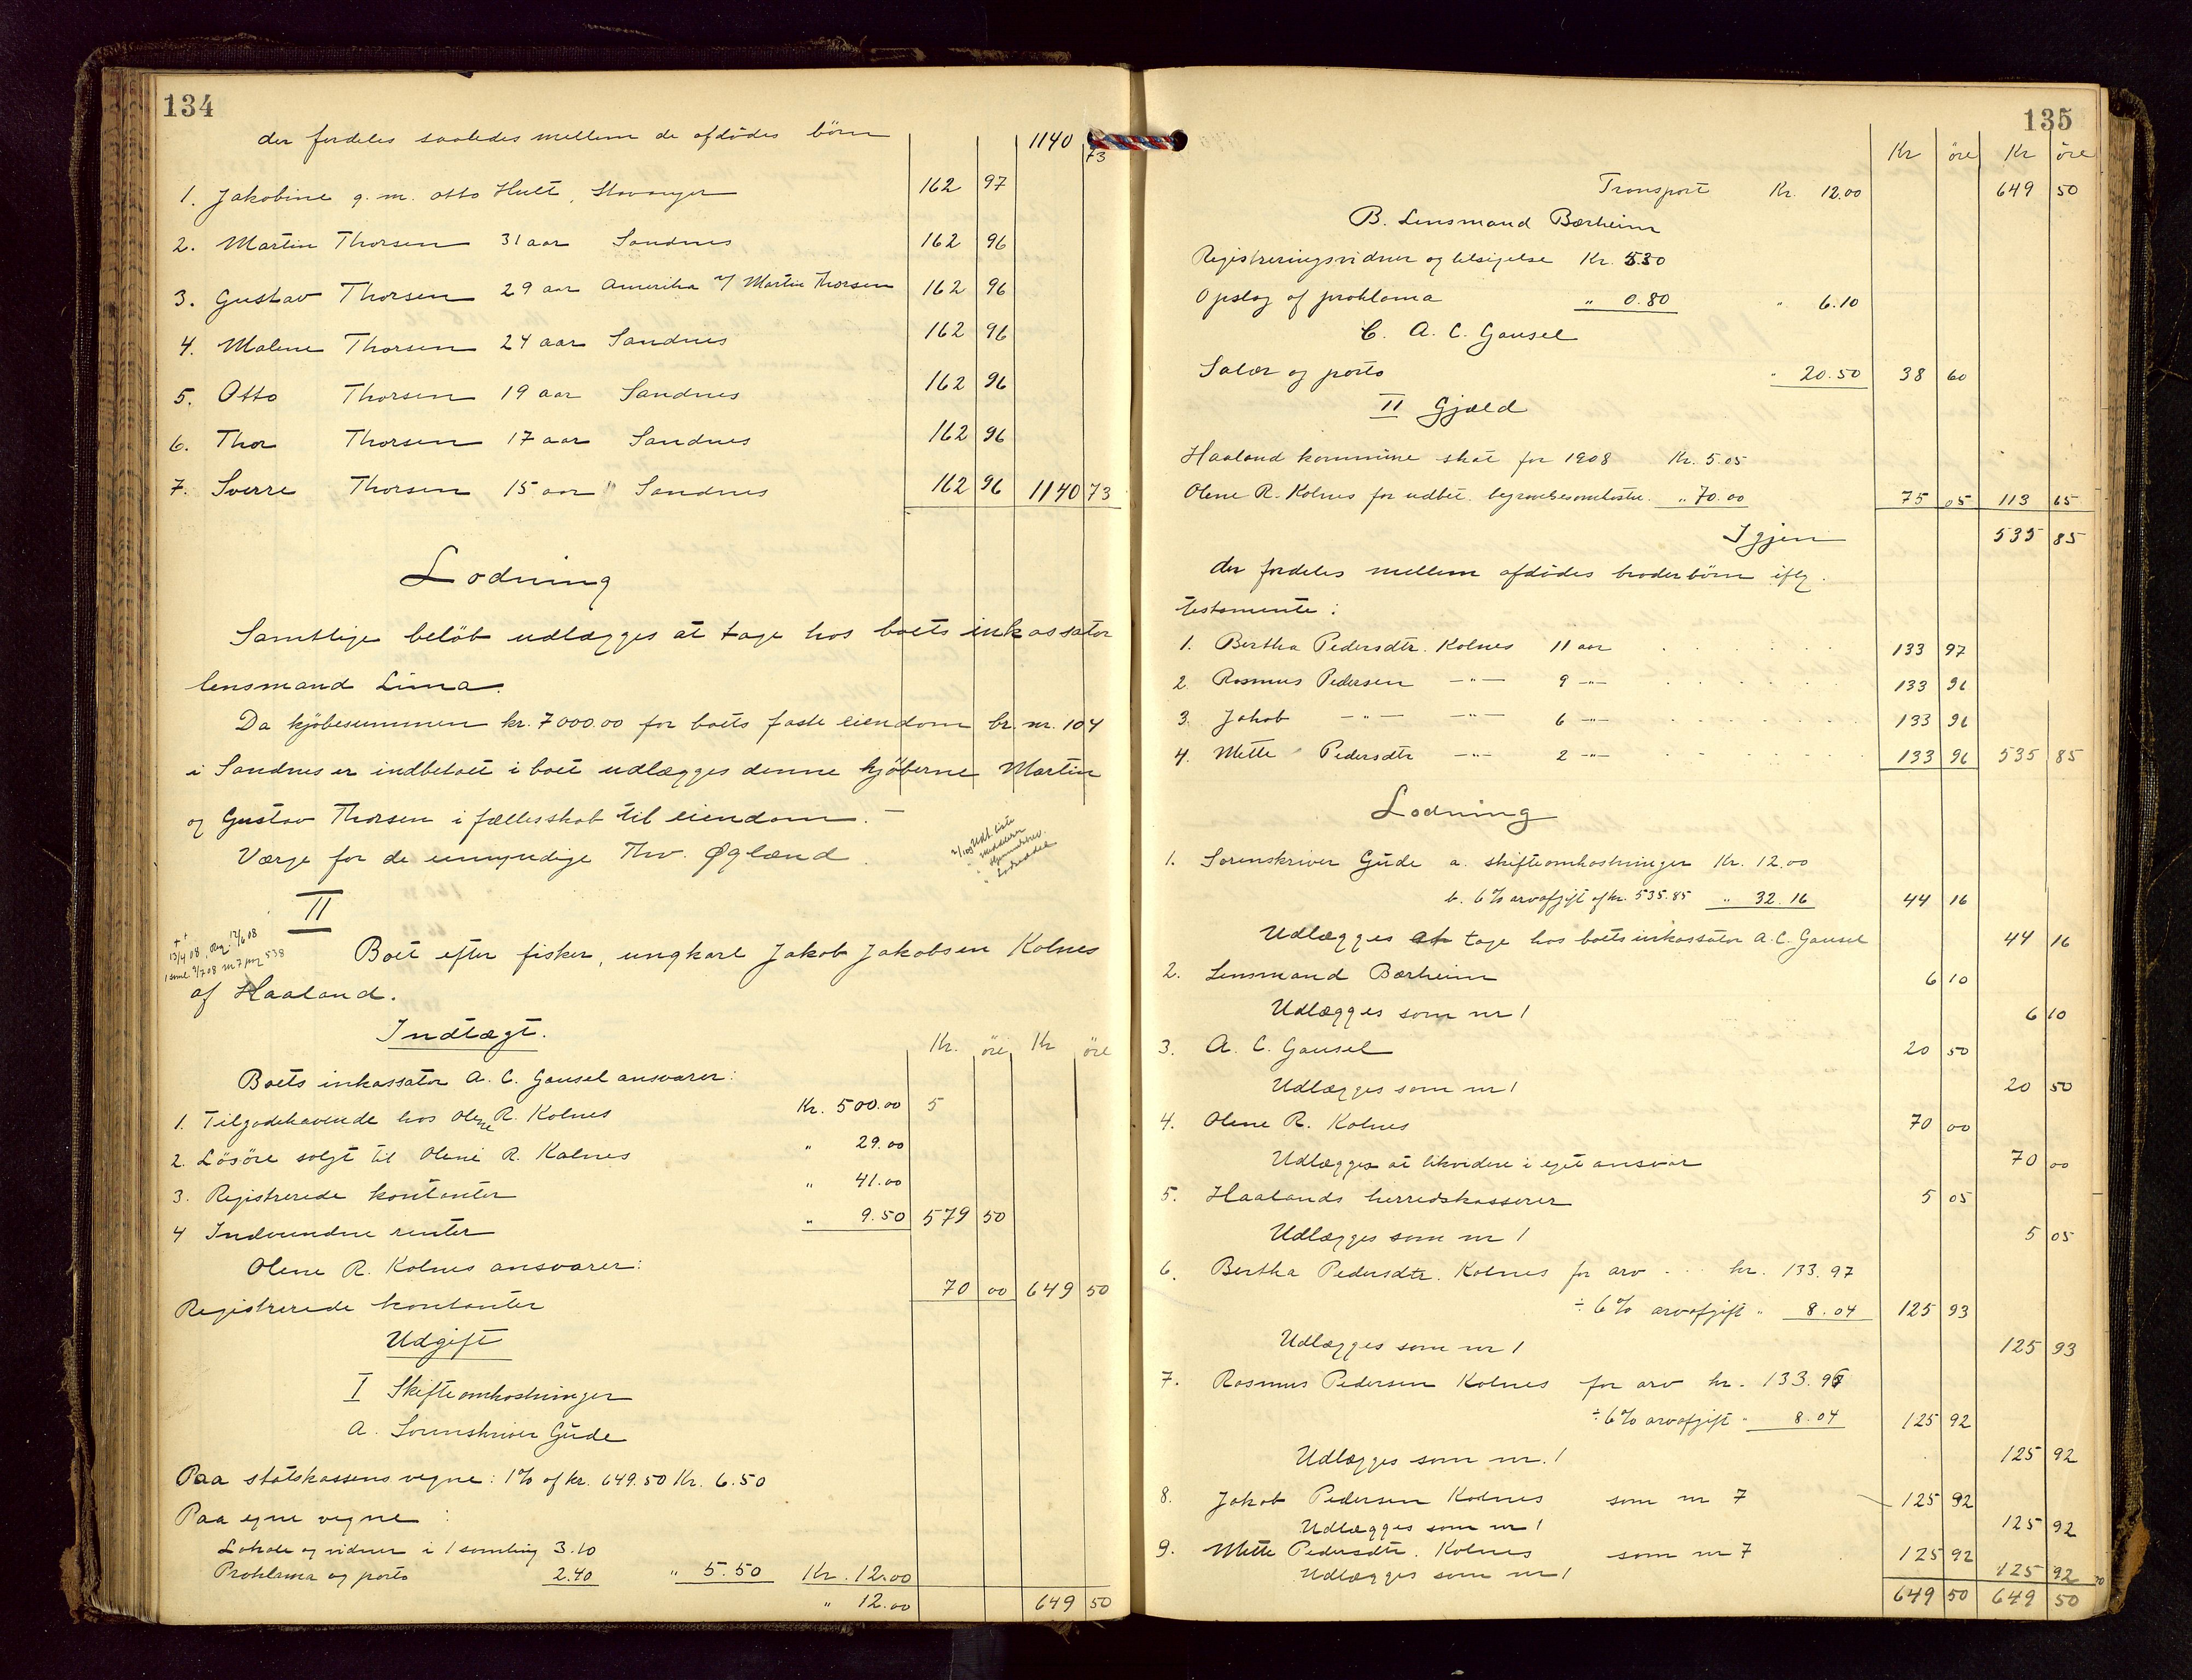 134
der fordeles saaledes mellem de afdødes børn 1140 73
1. Jakobine g. m. Otto Hult, Stavanger 162 97
2. Martin Thorsen 31 aar Sandnes 162 96
3. Gustav Thorsen 29 aar Amerika v/ Martin Thorsen 162 96
4. Malene Thorsen 24 aar Sandnes 162 96
5. Otto Thorsen 19 aar Sandnes 162 96
6. Thor Thorsen 17 aar Sandnes 162 96
7. Sverre Thorsen 15 aar Sandnes 162 96 1140 73
Lodning
Samtlige beløb udlægges at tage hos boets inkassator
lensmand Lima.
Da kjøbesummen kr. 7000.00 for boets faste eiendom br. nr. 104
i Sandnes er indbetalt i boet udlægges denne kjøberne Martin
og Gustav Thorsen i fællesskab til eiendom. —
Værge for de umyndige Thv. Øglænd.
II
13/4 08, Reg. 12/6 08
1 saml 3/7 08 nr 7 pag 538
Boet efter fisker, ungkarl Jakob Jakobsen Kolnes
af Haaland.
Indtægt.
Kr. øre Kr øre
Boets inkassator A. C. Gausel ansvarer:
1. Tilgodehavende hos Olene R. Kolnes Kr. 500.00 5
2. Løsøre solgt til Olene R. Kolnes " 29.00
3. Registrerede kontanter " 41.00
4 Indvundne renter " 9.50 579 50
Olene R. Kolnes ansvarer:
Registrerede kontanter 70 00 649 50
Udgift
I Skifteomkostninger
A. Sorenskriver Gude
Paa statskassens vegne: 1% af kr. 649.50 Kr. 6.50
Paa egne vegne :
Lokale og vidner i 1 samling 3.10
Proklama og porto 2.40 " 5.50 Kr. 12.00
" 12.00 649 50
135
Kr øre Kr øre
Transport Kr. 12.00 649 50
B. Lensmand Bærheim
Registreringsvidner og tilsigelse Kr. 5.30
Opslag af proklama " 0.80 " 6.10
C. A. C. Gausel
Salær og porto " 20.50 38 60
II Gjæld
Haaland kommune skat for 1908 Kr. 5.05
Olene R. Kolnes for udbet. begravelsesomkostn. " 70.00 75 05 113 65
Igjen 535 85
der fordeles mellem afdødes broderbørn iflg.
testamente:
1. Bertha Pedersdtr. Kolnes 11 aar 133 97
2. Rasmus Pedersen —"— 9 —"— 133 96
3. Jakob —"— —"— 6 —"— 133 96
4. Mette Pedersdtr —"— 2 —"— 133 96 535 85
Lodning
1. Sorenskriver Gude a. skifteomkostninger Kr. 12.00
b. 6% arvafgift af kr. 535.85 " 32.16 44 16
Udlægges at tage hos boets inkassator A. C. Gausel 44 16
2. Lensmand Bærheim 6 10
Udlægges som nr 1 6 10
3. A. C. Gausel 20 50
Udlægges som nr 1 20 50
4. Olene R. Kolnes 70 00
Udlægges at likvidere i eget ansvar 70 00
5. Haalands herredskasserer 5 05
Udlægges som nr 1 5 05
6. Bertha Pedersdtr. Kolnes for arv kr. 133.97
÷ 6% arvafgift " 8.04 125 93
Udlægges som nr 1 125 93
7. Rasmus Pedersen Kolnes for arv kr. 133.96
÷ 6% arvafgift " 8.04 125 92
Udlægges som nr. 1 125 92
8. Jakob Pedersen Kolnes som nr 7 125 92
Udlægges som nr 1 125 92
9. Mette Pedersdtr. Kolnes som nr 7 125 92
Udlægges som nr 1 125 92
649 50 649 50